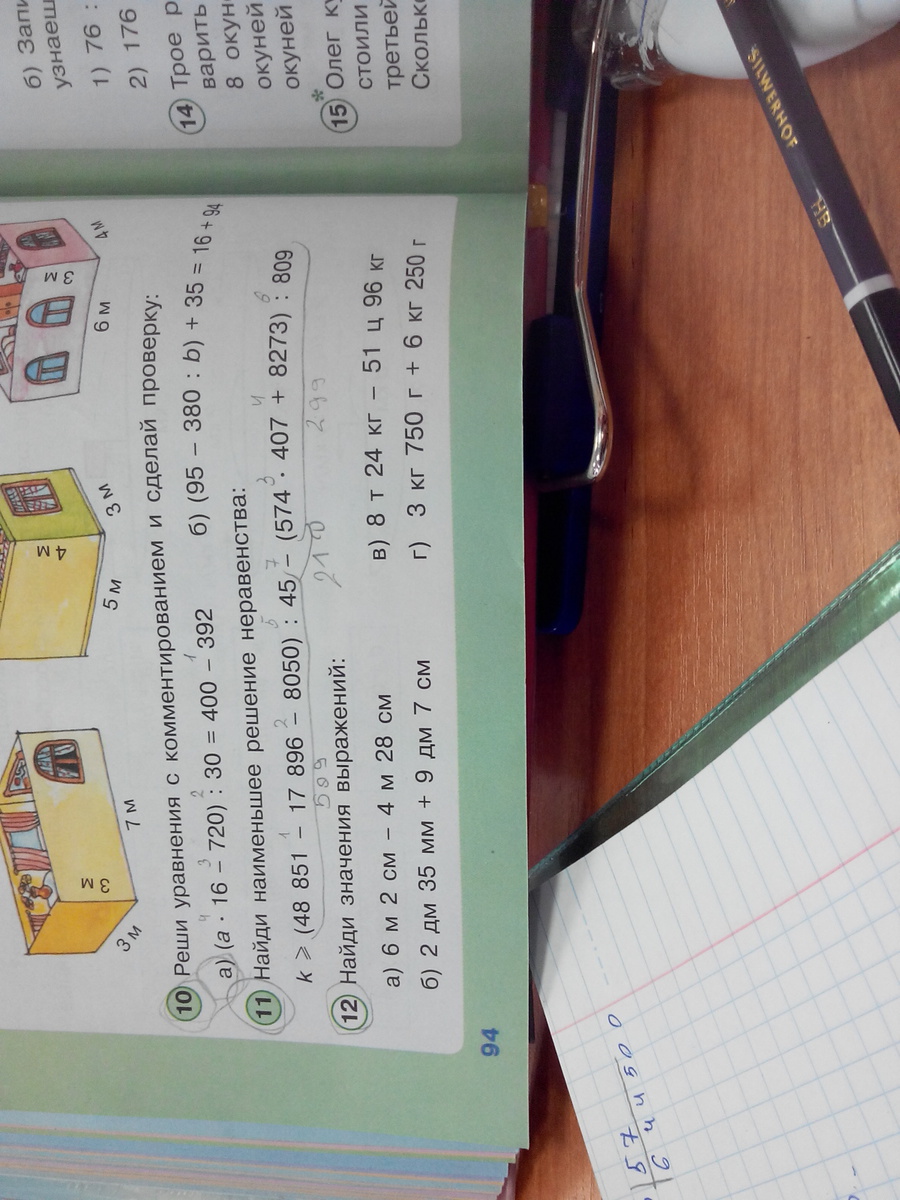 б) Запи
узнаеш
1) 76 :
2) 176
14 Трое р
варить
8 окун
окуней
окуней
15* Олег ку
стоили
третьей
Сколько
3 м
3 м
7 м
4 м
5 м
3 м
3 м
6 м
4 м
10 Реши уравнения с комментированием и сделай проверку:
а) (a · 16 − 720) : 30 = 400 − 392 б) (95 − 380 : b) + 35 = 16 + 94
4 3 2 1
11 Найди наименьшее решение неравенства:
k ⩾ (48 851 − 17 896 − 8050) : 45 − (574 · 407 + 8273) : 809
1 2 5 7 3 4 6
210 299
12 Найди значения выражений:
а) 6 м 2 см − 4 м 28 см в) 8 т 24 кг − 51 ц 96 кг
б) 2 дм 35 мм + 9 дм 7 см г) 3 кг 750 г + 6 кг 250 г
94
SILWERHOF
HB
57
644500